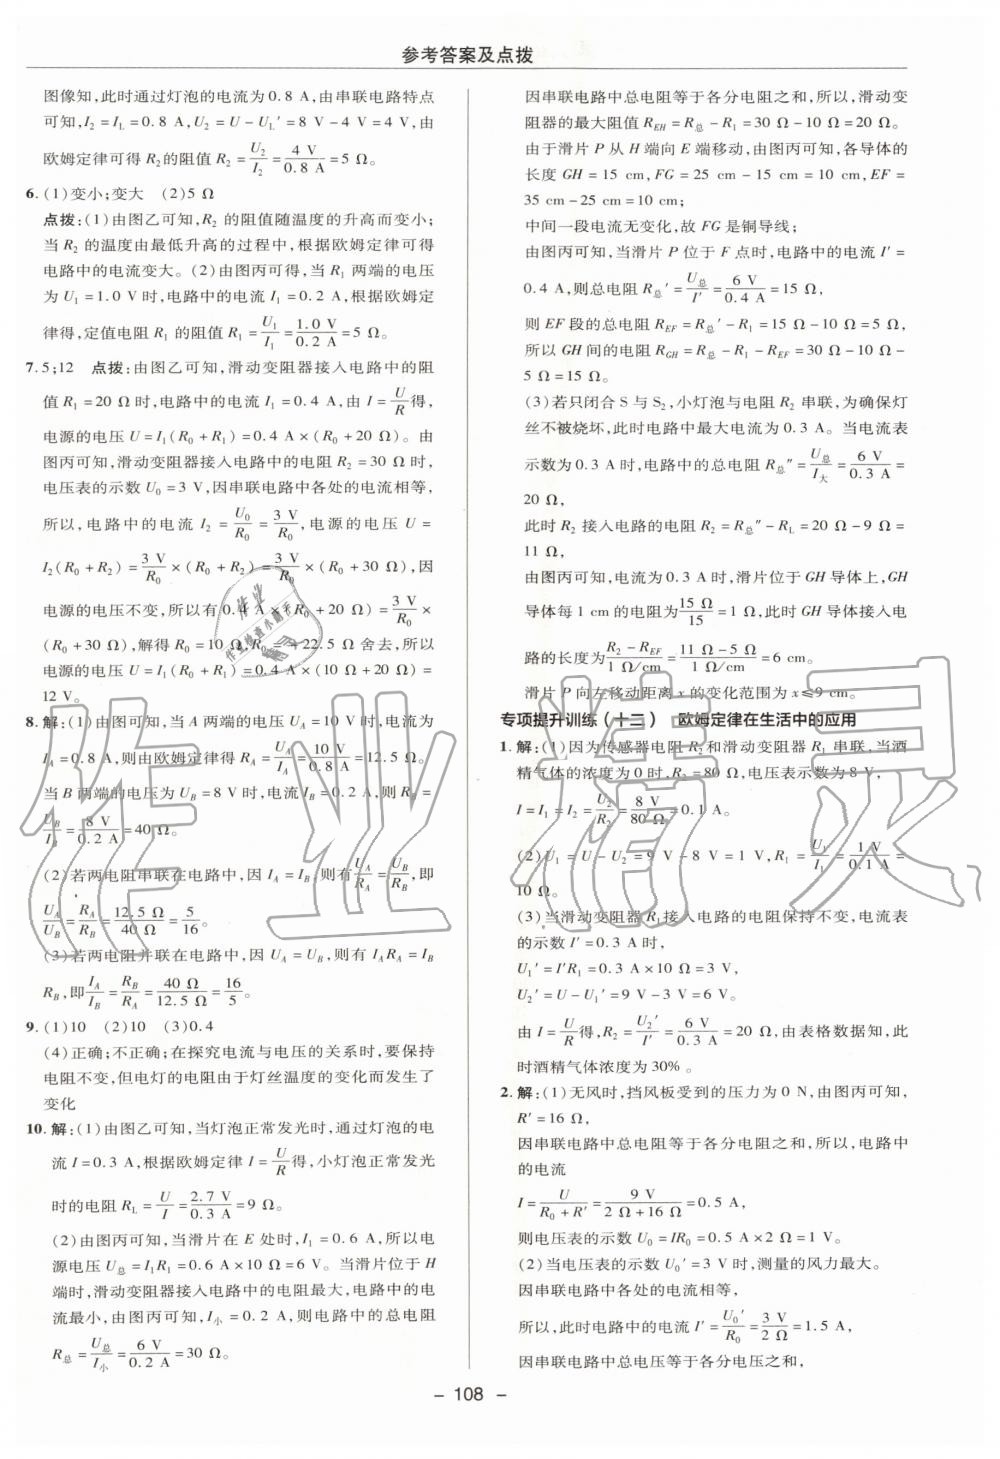 参考答案及点拨
图像知,此时通过灯泡的电流为0.8 A,由串联电路特点
可知,I₂=I_L=0.8 A,U₂=U-U_L′=8 V-4 V=4 V,由
欧姆定律可得R₂的阻值R₂=U₂/I₂=4 V/0.8 A=5 Ω。
6.(1)变小;变大 (2)5 Ω
点拨:(1)由图乙可知,R₂的阻值随温度的升高而变小;
当R₂的温度由最低升高的过程中,根据欧姆定律可得
电路中的电流变大。(2)由图丙可得,当R₁两端的电压
为U₁=1.0 V时,电路中的电流I₁=0.2 A,根据欧姆定
律得,定值电阻R₁的阻值R₁=U₁/I₁=1.0 V/0.2 A=5 Ω。
7.5;12 点拨:由图乙可知,滑动变阻器接入电路中的阻
值R₁=20 Ω时,电路中的电流I₁=0.4 A,由I=U/R得,
电源的电压U=I₁(R₀+R₁)=0.4 A×(R₀+20 Ω)。由
图丙可知,滑动变阻器接入电路中的电阻R₂=30 Ω时,
电压表的示数U₀=3 V,因串联电路中各处的电流相等,
所以,电路中的电流I₂=U₀/R₀=3 V/R₀,电源的电压U=
I₂(R₀+R₂)=3 V/R₀×(R₀+R₂)=3 V/R₀×(R₀+30 Ω),因
电源的电压不变,所以有0.4 A×(R₀+20 Ω)=3 V/R₀×
(R₀+30 Ω),解得R₀=10 Ω,R₀=-22.5 Ω舍去,所以
电源的电压U=I₁(R₀+R₁)=0.4 A×(10 Ω+20 Ω)=
12 V。
8.解:(1)由图可知,当A两端的电压U_A=10 V时,电流为
I_A=0.8 A,则由欧姆定律得R_A=U_A/I_A=10 V/0.8 A=12.5 Ω。
当B两端的电压为U_B=8 V时,电流I_B=0.2 A,则R_B=
U_B/I_B=8 V/0.2 A=40 Ω。
(2)若两电阻串联在电路中,因I_A=I_B,则有U_A/R_A=U_B/R_B,即
U_A/U_B=R_A/R_B=12.5 Ω/40 Ω=5/16。
(3)若两电阻并联在电路中,因U_A=U_B,则有I_A R_A=I_B
R_B,即I_A/I_B=R_B/R_A=40 Ω/12.5 Ω=16/5。
9.(1)10 (2)10 (3)0.4
(4)正确;不正确;在探究电流与电压的关系时,要保持
电阻不变,但电灯的电阻由于灯丝温度的变化而发生了
变化
10.解:(1)由图乙可知,当灯泡正常发光时,通过灯泡的电
流I=0.3 A,根据欧姆定律I=U/R得,小灯泡正常发光
时的电阻R_L=U/I=2.7 V/0.3 A=9 Ω。
(2)由图丙可知,当滑片在E处时,I₁=0.6 A,所以电
源电压U总=I₁R₁=0.6 A×10 Ω=6 V。当滑片位于H
端时,滑动变阻器接入电路中的电阻最大,电路中的电
流最小,由图丙可知,I小=0.2 A,则电路中的总电阻
R总=U总/I小=6 V/0.2 A=30 Ω。
因串联电路中总电阻等于各分电阻之和,所以,滑动变
阻器的最大阻值R_EH=R总-R₁=30 Ω-10 Ω=20 Ω。
由于滑片P从H端向E端移动,由图丙可知,各导体的
长度GH=15 cm,FG=25 cm-15 cm=10 cm,EF=
35 cm-25 cm=10 cm;
中间一段电流无变化,故FG是铜导线;
由图丙可知,当滑片P位于F点时,电路中的电流I′=
0.4 A,则总电阻R总′=U总/I′=6 V/0.4 A=15 Ω,
则EF段的总电阻R_EF=R总′-R₁=15 Ω-10 Ω=5 Ω,
所以GH间的电阻R_GH=R总-R₁-R_EF=30 Ω-10 Ω-
5 Ω=15 Ω。
(3)若只闭合S与S₂,小灯泡与电阻R₂串联,为确保灯
丝不被烧坏,此时电路中最大电流为0.3 A。当电流表
示数为0.3 A时,电路中的总电阻R总″=U总/I大=6 V/0.3 A=
20 Ω,
此时R₂接入电路的电阻R₂=R总″-R_L=20 Ω-9 Ω=
11 Ω,
由图丙可知,电流为0.3 A时,滑片位于GH导体上,GH
导体每1 cm的电阻为15 Ω/15=1 Ω,此时GH导体接入电
路的长度为(R₂-R_EF)/(1 Ω/cm)=(11 Ω-5 Ω)/(1 Ω/cm)=6 cm,
滑片P向左移动距离x的变化范围为x≤9 cm。
专项提升训练(十三) 欧姆定律在生活中的应用
1.解:(1)因为传感器电阻R₂和滑动变阻器R₁串联,当酒
精气体的浓度为0时,R₂=80 Ω,电压表示数为8 V,
I=I₁=I₂=U₂/R₂=8 V/80 Ω=0.1 A。
(2)U₁=U-U₂=9 V-8 V=1 V,R₁=U₁/I₁=1 V/0.1 A=
10 Ω。
(3)当滑动变阻器R₁接入电路的电阻保持不变,电流表
的示数I′=0.3 A时,
U₁′=I′R₁=0.3 A×10 Ω=3 V,
U₂′=U-U₁′=9 V-3 V=6 V。
由I=U/R得,R₂=U₂′/I′=6 V/0.3 A=20 Ω,由表格数据知,此
时酒精气体浓度为30%。
2.解:(1)无风时,挡风板受到的压力为0 N,由图丙可知,
R′=16 Ω,
因串联电路中总电阻等于各分电阻之和,所以,电路中
的电流
I=U/(R₀+R′)=9 V/(2 Ω+16 Ω)=0.5 A,
则电压表的示数U₀=IR₀=0.5 A×2 Ω=1 V。
(2)当电压表的示数U₀′=3 V时,测量的风力最大。
因串联电路中各处的电流相等,
所以,此时电路中的电流I′=U₀′/R₀=3 V/2 Ω=1.5 A,
因串联电路中总电压等于各分电压之和,
- 108 -
作业精灵